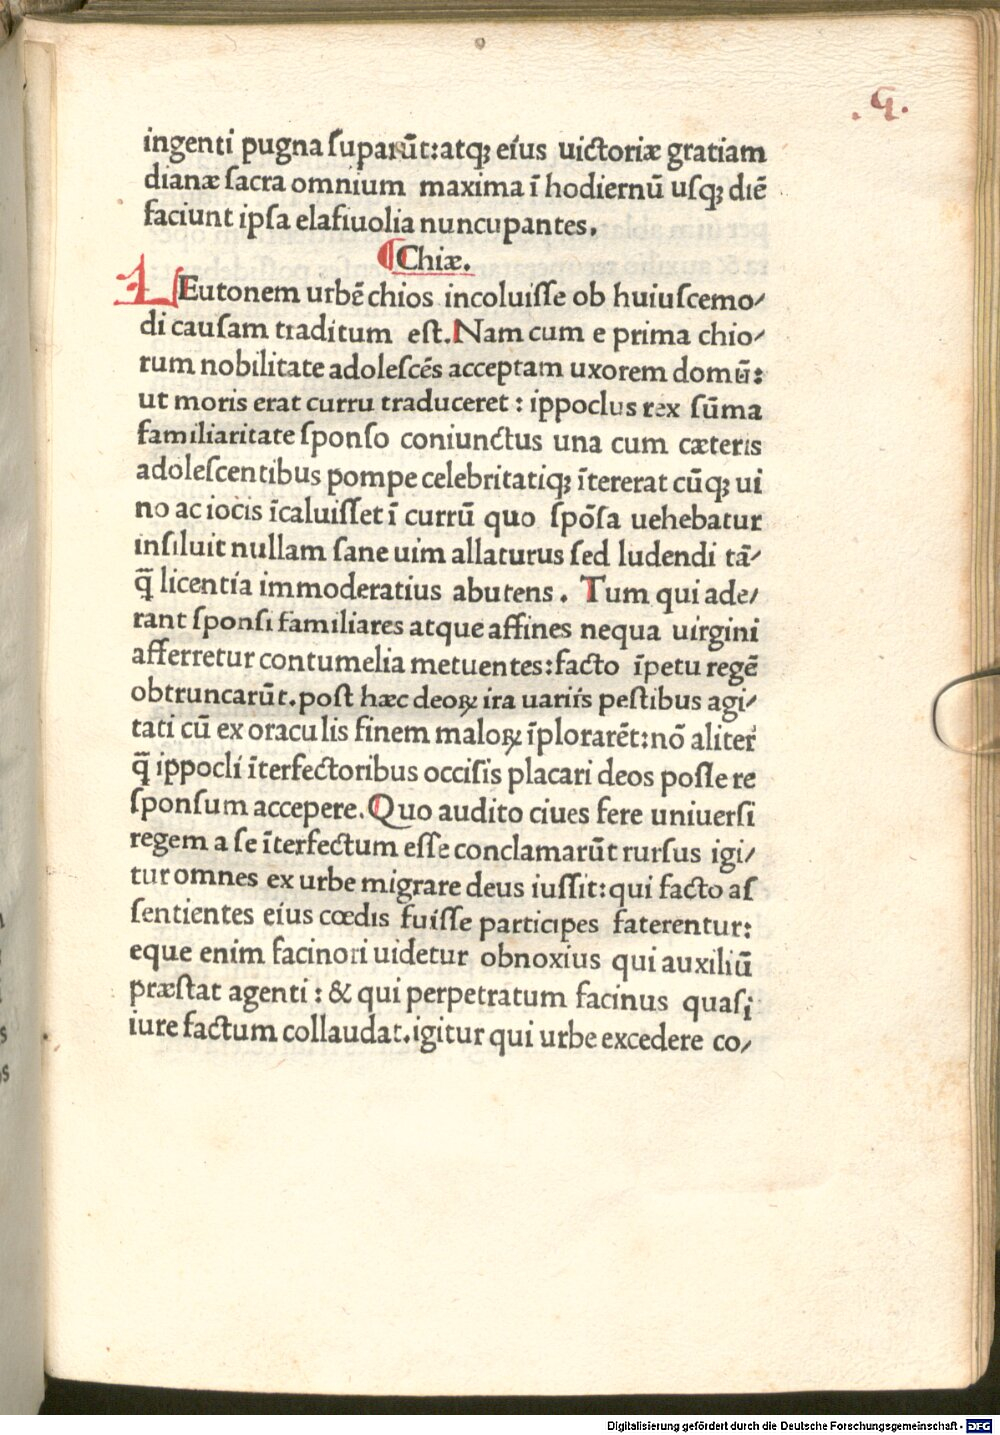 .5.
ingenti pugna ſuparūt:atq; eius uictoriæ gratiam
dianæ ſacra omnium maxima ī hodiernū uſq; diē
faciunt ipſa elafiuolia nuncupantes.
Chiæ.
LEutonem urbē chios incoluiſſe ob huiuſcemo⸗
di cauſam traditum eſt.Nam cum e prima chio⸗
rum nobilitate adoleſcēs acceptam uxorem domū:
ut moris erat curru traduceret : ippoclus rex ſūma
familiaritate ſponſo coniunctus una cum cæteris
adoleſcentibus pompe celebritatiq; ītererat cūq; ui
no ac iocis īcaluiſſet ī currū quo ſpōſa uehebatur
inſiluit nullam ſane uim allaturus ſed ludendi tā⸗
q̄ licentia immoderatius abutens . Tum qui ade⸗
rant ſponſi familiares atque affines nequa uirgini
afferretur contumelia metuentes:facto īpetu regē
obtruncarūt.poſt hæc deoꝝ ira uariis peſtibus agi⸗
tati cū ex oraculis finem maloꝝ īplorarēt:nō aliter
q̄ ippocli īterfectoribus occiſis placari deos poſſe re
ſponſum accepere.Quo audito ciues fere uniuerſi
regem a ſe īterfectum eſſe conclamarūt rurſus igi⸗
tur omnes ex urbe migrare deus iuſſit:qui facto aſ
ſentientes eius cœdis fuiſſe participes faterentur:
eque enim facinori uidetur obnoxius qui auxiliū
præſtat agenti : & qui perpetratum facinus quaſi
iure factum collaudat.igitur qui urbe excedere co⸗
Digitalisierung gefördert durch die Deutsche Forschungsgemeinschaft - DFG